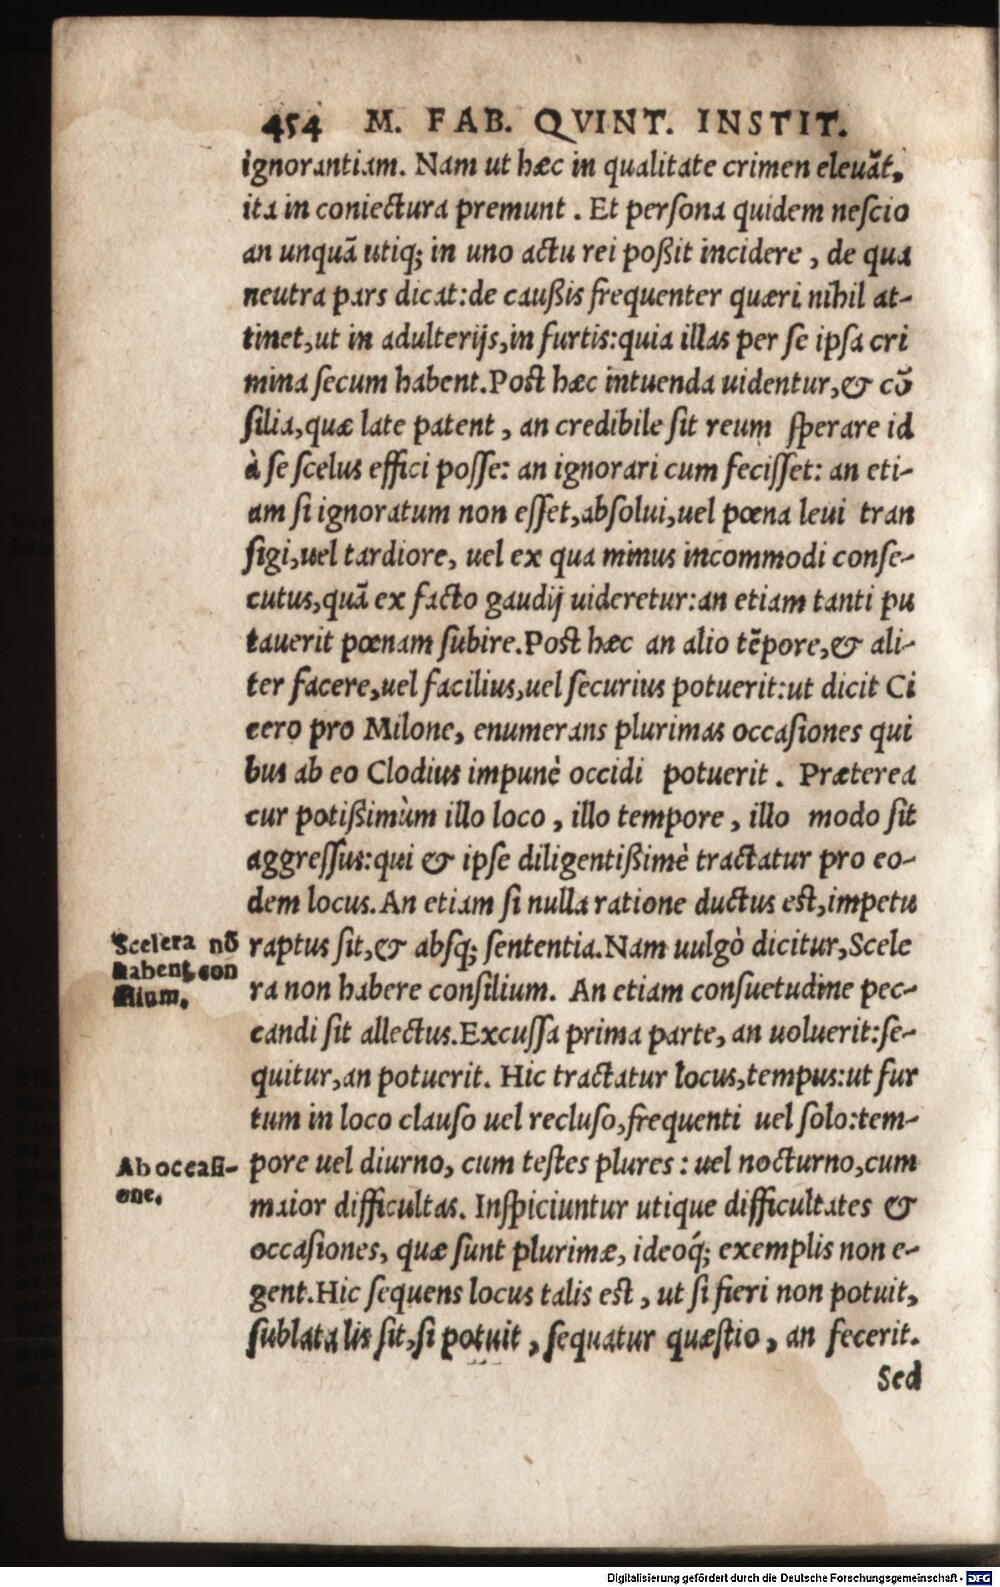 454 M. FAB. QVINT. INSTIT.
ignorantiam. Nam ut hæc in qualitate crimen eleuãt,
ita in coniectura premunt. Et persona quidem nescio
an unquã utiq; in uno actu rei poßit incidere, de qua
neutra pars dicat: de caußis frequenter quæri nihil at-
tinet, ut in adulterijs, in furtis: quia illas per se ipsa cri
mina secum habent. Post hæc intuenda uidentur, & cõ
silia, quæ late patent, an credibile sit reum sperare id
à se scelus effici posse: an ignorari cum fecisset: an eti-
am si ignoratum non esset, absolui, uel pœna leui tran
sigi, uel tardiore, uel ex qua minus incommodi conse-
cutus, quã ex facto gaudij uideretur: an etiam tanti pu
tauerit pœnam subire. Post hæc an alio tẽpore, & ali-
ter facere, uel facilius, uel securius potuerit: ut dicit Ci
cero pro Milone, enumerans plurimas occasiones qui
bus ab eo Clodius impunè occidi potuerit. Præterea
cur potißimùm illo loco, illo tempore, illo modo sit
aggressus: qui & ipse diligentißimè tractatur pro eo-
dem locus. An etiam si nulla ratione ductus est, impetu
raptus sit, & absq; sententia. Nam uulgò dicitur, Scele
ra non habere consilium. An etiam consuetudine pec-
candi sit allectus. Excussa prima parte, an uoluerit: se-
quitur, an potuerit. Hic tractatur locus, tempus: ut fur
tum in loco clauso uel recluso, frequenti uel solo: tem-
pore uel diurno, cum testes plures: uel nocturno, cum
maior difficultas. Inspiciuntur utique difficultates &
occasiones, quæ sunt plurimæ, ideoq́; exemplis non e-
gent. Hic sequens locus talis est, ut si fieri non potuit,
sublata lis sit, si potuit, sequatur quæstio, an fecerit.
Sed
Scelera nõ
habent con
silium.
Ab occasi-
one.
Digitalisierung gefördert durch die Deutsche Forschungsgemeinschaft - DFG